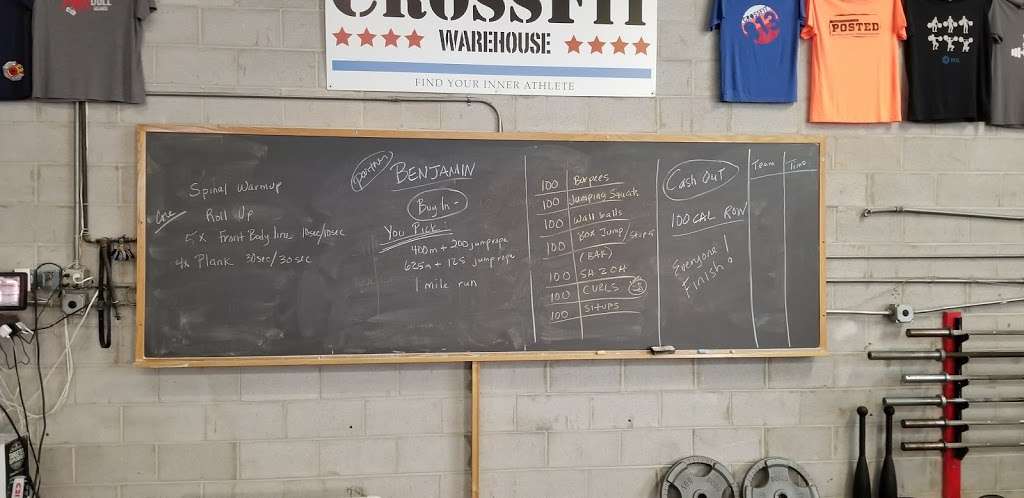 CROSSFIT
WAREHOUSE
FIND YOUR INNER ATHLETE
POSTED
Spinal Warmup
Core
Roll Up
5x Front Body Line 10sec/10sec
4x Plank 30sec/30sec
partner
BENJAMIN
Buy In -
You Pick
400m + 200 jumprope
625m + 125 jumprope
1 mile run
100 Burpees
100 Jumping Squats
100 Wall balls
100 Box Jump / Step up
(BAR)
100 SH 2 OH
100 CURLS
100 Sit-ups
Cash Out
100 CAL ROW
Everyone
Finish!
Team Time